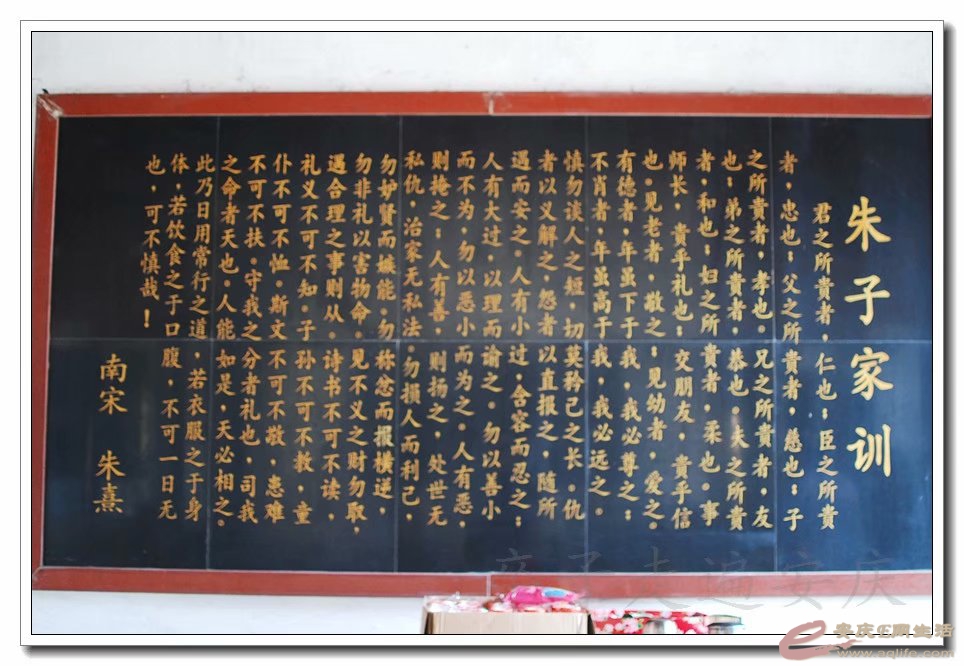 朱子家训
君之所貴者，仁也；臣之所貴
者，忠也；父之所貴者，慈也；子
之所貴者，孝也。兄之所貴者，友
也；弟之所貴者，恭也。夫之所貴
者，和也；妇之所貴者，柔也。事
师长，貴乎礼也；交朋友，貴乎信
也。见老者，敬之；见幼者，爱之。
有德者，年虽下于我，我必尊之；
不肖者，年虽高于我，我必远之。
慎勿谈人之短，切莫矜己之长。仇
者以义解之，怨者以直报之，随所
遇而安之。人有小过，含容而忍之；
人有大过，以理而谕之。勿以善小
而不为，勿以恶小而为之。人有恶，
则掩之；人有善，则扬之，处世无
私仇，治家无私法。勿损人而利己，
勿妒賢而嫉能。勿称忿而报横逆，
勿非礼以害物命。见不义之财勿取，
遇合理之事则从。诗书不可不读，
礼义不可不知。子孙不可不教，童
仆不可不恤。斯文不可不敬，患难
不可不扶。守我之分者礼也，司我
之命者天也。人能如是，天必相之。
此乃日用常行之道，若衣服之于身
体，若饮食之于口腹，不可一日无
也，可不慎哉！
南宋 朱熹
走遍安庆
安庆E网生活
www.aqlife.com